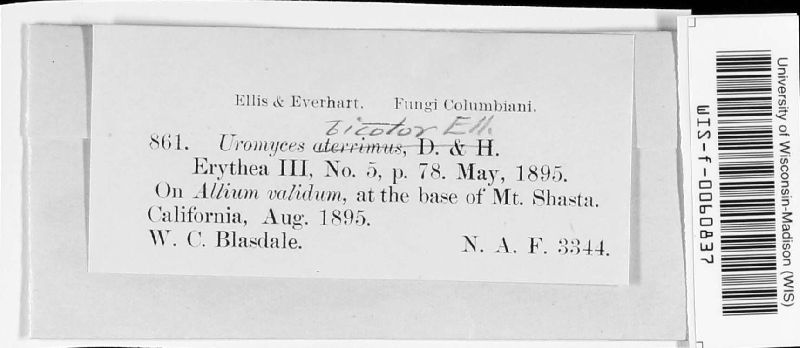 Ellis & Everhart. Fungi Columbiani.
bicolor Ell.
861. Uromyces aterrimus, D. & H.
Erythea III, No. 5, p. 78. May, 1895.
On Allium validum, at the base of Mt. Shasta.
California, Aug. 1895.
W. C. Blasdale. N. A. F. 3344.
University of Wisconsin-Madison (WIS)
WIS-f-0060837